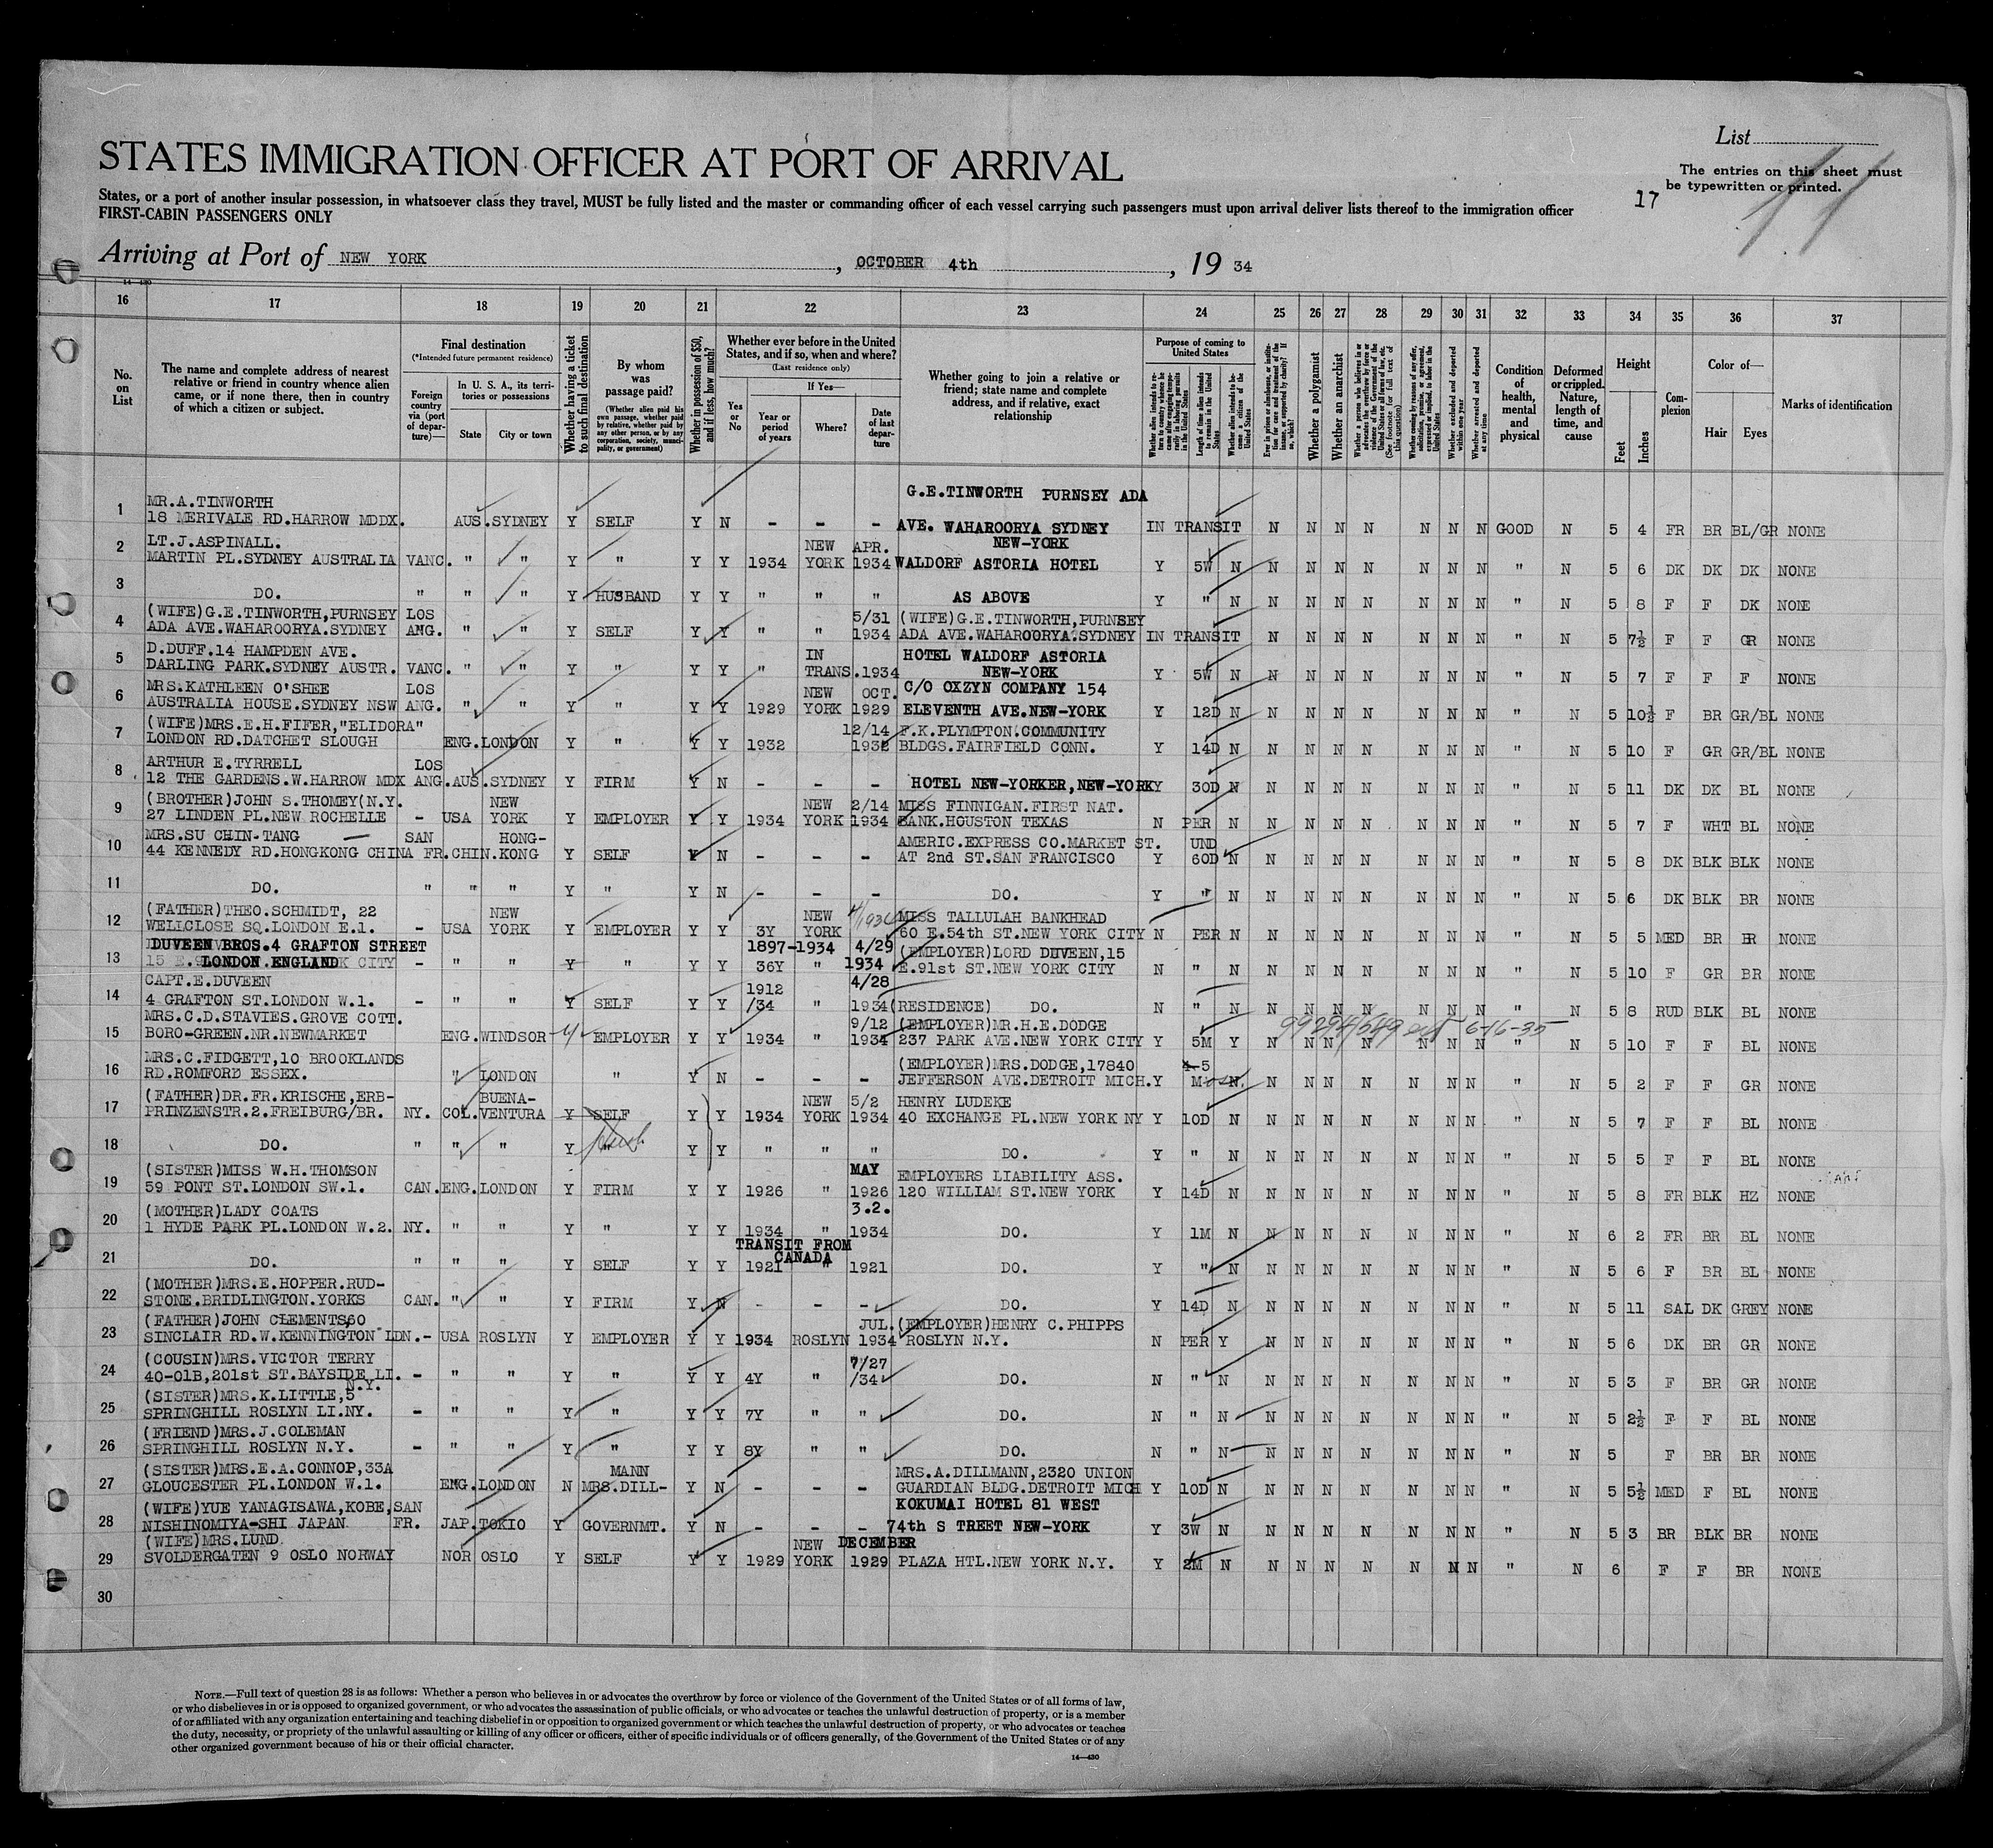 List
STATES IMMIGRATION OFFICER AT PORT OF ARRIVAL
The entries on this sheet must
be typewritten or printed.
17
States, or a port of another insular possession, in whatsoever class they travel, MUST be fully listed and the master or commanding officer of each vessel carrying such passengers must upon arrival deliver lists thereof to the immigration officer
FIRST-CABIN PASSENGERS ONLY
Arriving at Port of NEW YORK, OCTOBER 4th, 19 34
14-430
16 17 18 19 20 21 22 23 24 25 26 27 28 29 30 31 32 33 34 35 36 37
No. on List
The name and complete address of nearest relative or friend in country whence alien came, or if none there, then in country of which a citizen or subject.
Final destination
(*Intended future permanent residence)
Foreign country via (port of departure)—
In U. S. A., its territories or possessions
State
City or town
Whether having a ticket to such final destination
By whom was passage paid?
(Whether alien paid his own passage, whether paid by relative, whether paid by any other person, or by any corporation, society, municipality, or government)
Whether in possession of $50, and if less, how much?
Whether ever before in the United States, and if so, when and where?
(Last residence only)
Yes or No
If Yes—
Year or period of years
Where?
Date of last departure
Whether going to join a relative or friend; state name and complete address, and if relative, exact relationship
Purpose of coming to United States
Whether alien intends to return to country whence he came after engaging temporarily in laboring pursuits in the United States
Length of time alien intends to remain in the United States
Whether alien intends to become a citizen of the United States
Ever in prison or almshouse, or institution for care and treatment of the insane, or supported by charity? If so, which?
Whether a polygamist
Whether an anarchist
Whether a person who believes in or advocates the overthrow by force or violence of the Government of the United States or all forms of law, etc. (See footnote for full text of this question)
Whether coming by reasons of any offer, solicitation, promise, or agreement, expressed or implied, to labor in the United States
Whether excluded and deported within one year
Whether arrested and deported at any time
Condition of health, mental and physical
Deformed or crippled. Nature, length of time, and cause
Height
Feet
Inches
Complexion
Color of—
Hair
Eyes
Marks of identification
MR.A.TINWORTH G.E.TINWORTH PURNSEY ADA
1 18 MERIVALE RD.HARROW MDDX. AUS.SYDNEY Y SELF Y N - - - AVE. WAHAROORYA SYDNEY IN TRANSIT N N N N N N N GOOD N 5 4 FR BR BL/GR NONE
LT.J.ASPINALL. NEW APR. NEW-YORK
2 MARTIN PL.SYDNEY AUSTRALIA VANC. " " Y " Y Y 1934 YORK 1934 WALDORF ASTORIA HOTEL Y 5W N N N N N N N N " N 5 6 DK DK DK NONE
3 DO. " " " Y HUSBAND Y Y " " " AS ABOVE Y " N N N N N N N N " N 5 8 F F DK NONE
(WIFE)G.E.TINWORTH,PURNSEY LOS 5/31 (WIFE)G.E.TINWORTH,PURNSEY
4 ADA AVE.WAHAROORYA.SYDNEY ANG. " " Y SELF Y Y " " 1934 ADA AVE.WAHAROORYA.SYDNEY IN TRANSIT N N N N N N N " N 5 7½ F F GR NONE
D.DUFF.14 HAMPDEN AVE. IN HOTEL WALDORF ASTORIA
5 DARLING PARK.SYDNEY AUSTR. VANC. " " Y " Y Y " TRANS.1934 NEW-YORK Y 5W N N N N N N N N " N 5 7 F F F NONE
MRS.KATHLEEN O'SHEE LOS NEW OCT. C/O OXZYN COMPANY 154
6 AUSTRALIA HOUSE.SYDNEY NSW ANG. " " Y " Y Y 1929 YORK 1929 ELEVENTH AVE.NEW-YORK Y 12D N N N N N N N N " N 5 10½ F BR GR/BL NONE
(WIFE)MRS.E.H.FIFER,"ELIDORA" 12/14 F.K.PLYMPTON.COMMUNITY
7 LONDON RD.DATCHET SLOUGH ENG.LONDON Y " Y Y 1932 1932 BLDGS.FAIRFIELD CONN. Y 14D N N N N N N N N " N 5 10 F GR GR/BL NONE
ARTHUR E.TYRRELL LOS
8 12 THE GARDENS.W.HARROW MDX ANG.AUS.SYDNEY Y FIRM Y N - - - HOTEL NEW-YORKER,NEW-YORK Y 30D N N N N N N N N " N 5 11 DK DK BL NONE
(BROTHER)JOHN S.THOMEY(N.Y. NEW NEW 2/14 MISS FINNIGAN.FIRST NAT.
9 27 LINDEN PL.NEW ROCHELLE - USA YORK Y EMPLOYER Y Y 1934 YORK 1934 BANK.HOUSTON TEXAS N PER N N N N N N N N " N 5 7 F WHT BL NONE
MRS.SU CHIN-TANG — SAN HONG- AMERIC.EXPRESS CO.MARKET ST. UND
10 44 KENNEDY RD.HONGKONG CHINA FR.CHIN.KONG Y SELF Y N - - - AT 2nd ST.SAN FRANCISCO Y 60D N N N N N N N N " N 5 8 DK BLK BLK NONE
11 DO. " " " Y " Y N - - - DO. Y " N N N N N N N N " N 5 6 DK BLK BR NONE
(FATHER)THEO.SCHMIDT, 22 NEW NEW 4/1934 MISS TALLULAH BANKHEAD
12 WELLCLOSE SQ.LONDON E.1. - USA YORK Y EMPLOYER Y Y 3Y YORK 60 E.54th ST.NEW YORK CITY N PER N N N N N N N N " N 5 5 MED BR BR NONE
DUVEEN BROS.4 GRAFTON STREET 1897-1934 4/29 (EMPLOYER)LORD DUVEEN,15
13 LONDON.ENGLAND CITY - " " Y " Y Y 36Y " 1934 E.91st ST.NEW YORK CITY N " N N N N N N N N " N 5 10 F GR BR NONE
CAPT.E.DUVEEN 1912 4/28
14 4 GRAFTON ST.LONDON W.1. - " " Y SELF Y Y /34 " 1934 (RESIDENCE) DO. N " N N N N N N N N " N 5 8 RUD BLK BL NONE
MRS.C.D.STAVIES.GROVE COTT. 9/12 (EMPLOYER)MR.H.E.DODGE 6-16-35
15 BORO-GREEN.NR.NEWMARKET ENG.WINDSOR EMPLOYER Y Y 1934 " 1934 237 PARK AVE.NEW YORK CITY Y 5M Y N N N N N N N " N 5 10 F F BL NONE
MRS.C.FIDGETT,10 BROOKLANDS (EMPLOYER)MRS.DODGE,17840 5
16 RD.ROMFORD ESSEX. " LONDON " Y N - - - JEFFERSON AVE.DETROIT MICH.Y M N N N N N N N N " N 5 2 F F GR NONE
(FATHER)DR.FR.KRISCHE,ERB- BUENA- NEW 5/2 HENRY LUDEKE
17 PRINZENSTR.2.FREIBURG/BR. NY. COL.VENTURA Y SELF Y Y 1934 YORK 1934 40 EXCHANGE PL.NEW YORK NY Y 10D N N N N N N N N " N 5 7 F F BL NONE
18 DO. " " " Y Husb Y Y " " " DO. Y " N N N N N N N N " N 5 5 F F BL NONE
(SISTER)MISS W.H.THOMSON MAY EMPLOYERS LIABILITY ASS.
19 59 PONT ST.LONDON SW.1. CAN.ENG.LONDON Y FIRM Y Y 1926 " 1926 120 WILLIAM ST.NEW YORK Y 14D N N N N N N N N " N 5 8 FR BLK HZ NONE
(MOTHER)LADY COATS 3.2.
20 1 HYDE PARK PL.LONDON W.2. NY. " " Y " Y Y 1934 " 1934 DO. Y 1M N N N N N N N N " N 6 2 FR BR BL NONE
TRANSIT FROM CANADA
21 DO. " " " Y SELF Y Y 1921 " 1921 DO. Y " N N N N N N N N " N 5 6 F BR BL NONE
(MOTHER)MRS.E.HOPPER.RUD-
22 STONE.BRIDLINGTON.YORKS CAN. " " Y FIRM Y N - - - DO. Y 14D N N N N N N N N " N 5 11 SAL DK GREY NONE
(FATHER)JOHN CLEMENTS,60 JUL. (EMPLOYER)HENRY C.PHIPPS
23 SINCLAIR RD.W.KENNINGTON LDN.- USA ROSLYN Y EMPLOYER Y Y 1934 ROSLYN 1934 ROSLYN N.Y. N PER Y N N N N N N N " N 5 6 DK BR GR NONE
(COUSIN)MRS.VICTOR TERRY 7/27
24 40-01B,201st ST.BAYSIDE LI. N.Y. - " " Y " Y Y 4Y " /34 DO. N " N N N N N N N N " N 5 3 F BR GR NONE
(SISTER)MRS.K.LITTLE,5
25 SPRINGHILL ROSLYN LI.NY. - " " Y " Y Y 7Y " " DO. N " N N N N N N N N " N 5 2½ F F BL NONE
(FRIEND)MRS.J.COLEMAN
26 SPRINGHILL ROSLYN N.Y. - " " Y " Y Y 8Y " " DO. N " N N N N N N N N " N 5 F BR BR NONE
(SISTER)MRS.E.A.CONNOP,33A MANN MRS.A.DILLMANN,2320 UNION
27 GLOUCESTER PL.LONDON W.1. ENG.LONDON N MRS.DILL- Y N - - - GUARDIAN BLDG.DETROIT MICH Y 10D N N N N N N N N " N 5 5½ MED F BL NONE
(WIFE)YUE YANAGISAWA,KOBE,SAN KOKUMAI HOTEL 81 WEST
28 NISHINOMIYA-SHI JAPAN FR. JAP.TOKIO Y GOVERNMT. Y N - - - 74th S TREET NEW-YORK Y 3W N N N N N N N N " N 5 3 BR BLK BR NONE
(WIFE)MRS.LUND NEW DECEMBER
29 SVOLDERGATEN 9 OSLO NORWAY NOR OSLO Y SELF Y Y 1929 YORK 1929 PLAZA HTL.NEW YORK N.Y. Y 2M N N N N N N N N " N 6 F F BR NONE
30
NOTE.—Full text of question 28 is as follows: Whether a person who believes in or advocates the overthrow by force or violence of the Government of the United States or of all forms of law,
or who disbelieves in or is opposed to organized government, or who advocates the assassination of public officials, or who advocates or teaches the unlawful destruction of property, or is a member
of or affiliated with any organization entertaining and teaching disbelief in or opposition to organized government or which teaches the unlawful destruction of property, or who advocates or teaches
the duty, necessity, or propriety of the unlawful assaulting or killing of any officer or officers, either of specific individuals or of officers generally, of the Government of the United States or of any
other organized government because of his or their official character.
14-430